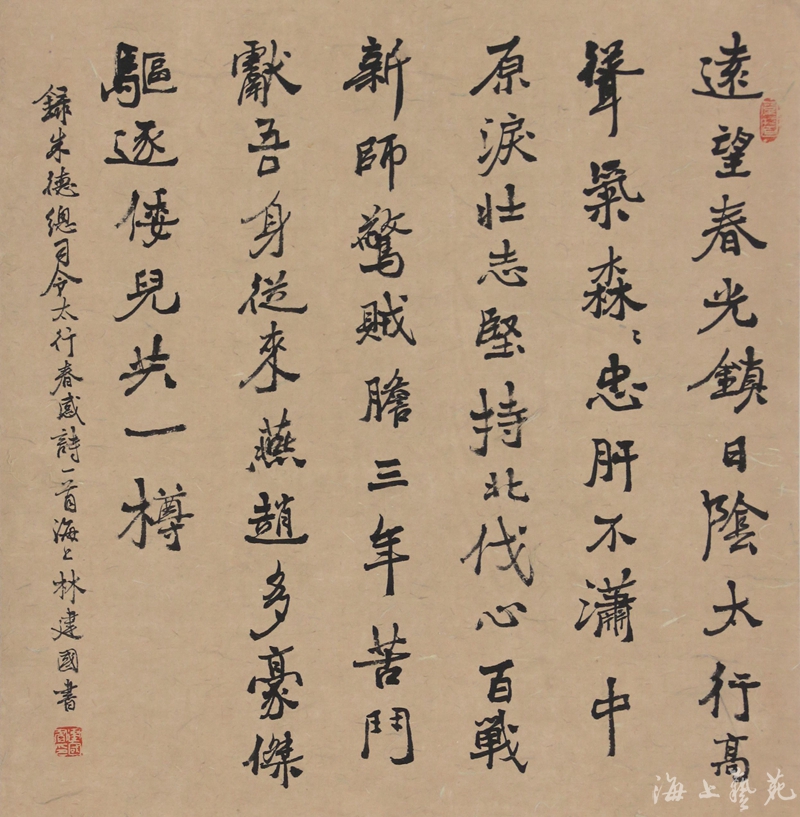 遠望春光鎮日陰太行高
聳氣森々忠肝不瀟中
原淚壯志堅持北伐心百戰
新師驚賊膽三年苦鬥
獻吾身從來燕趙多豪傑
驅逐倭兒共一樽
錄朱德總司令太行春感詩一首海上林建國書
海上藝苑